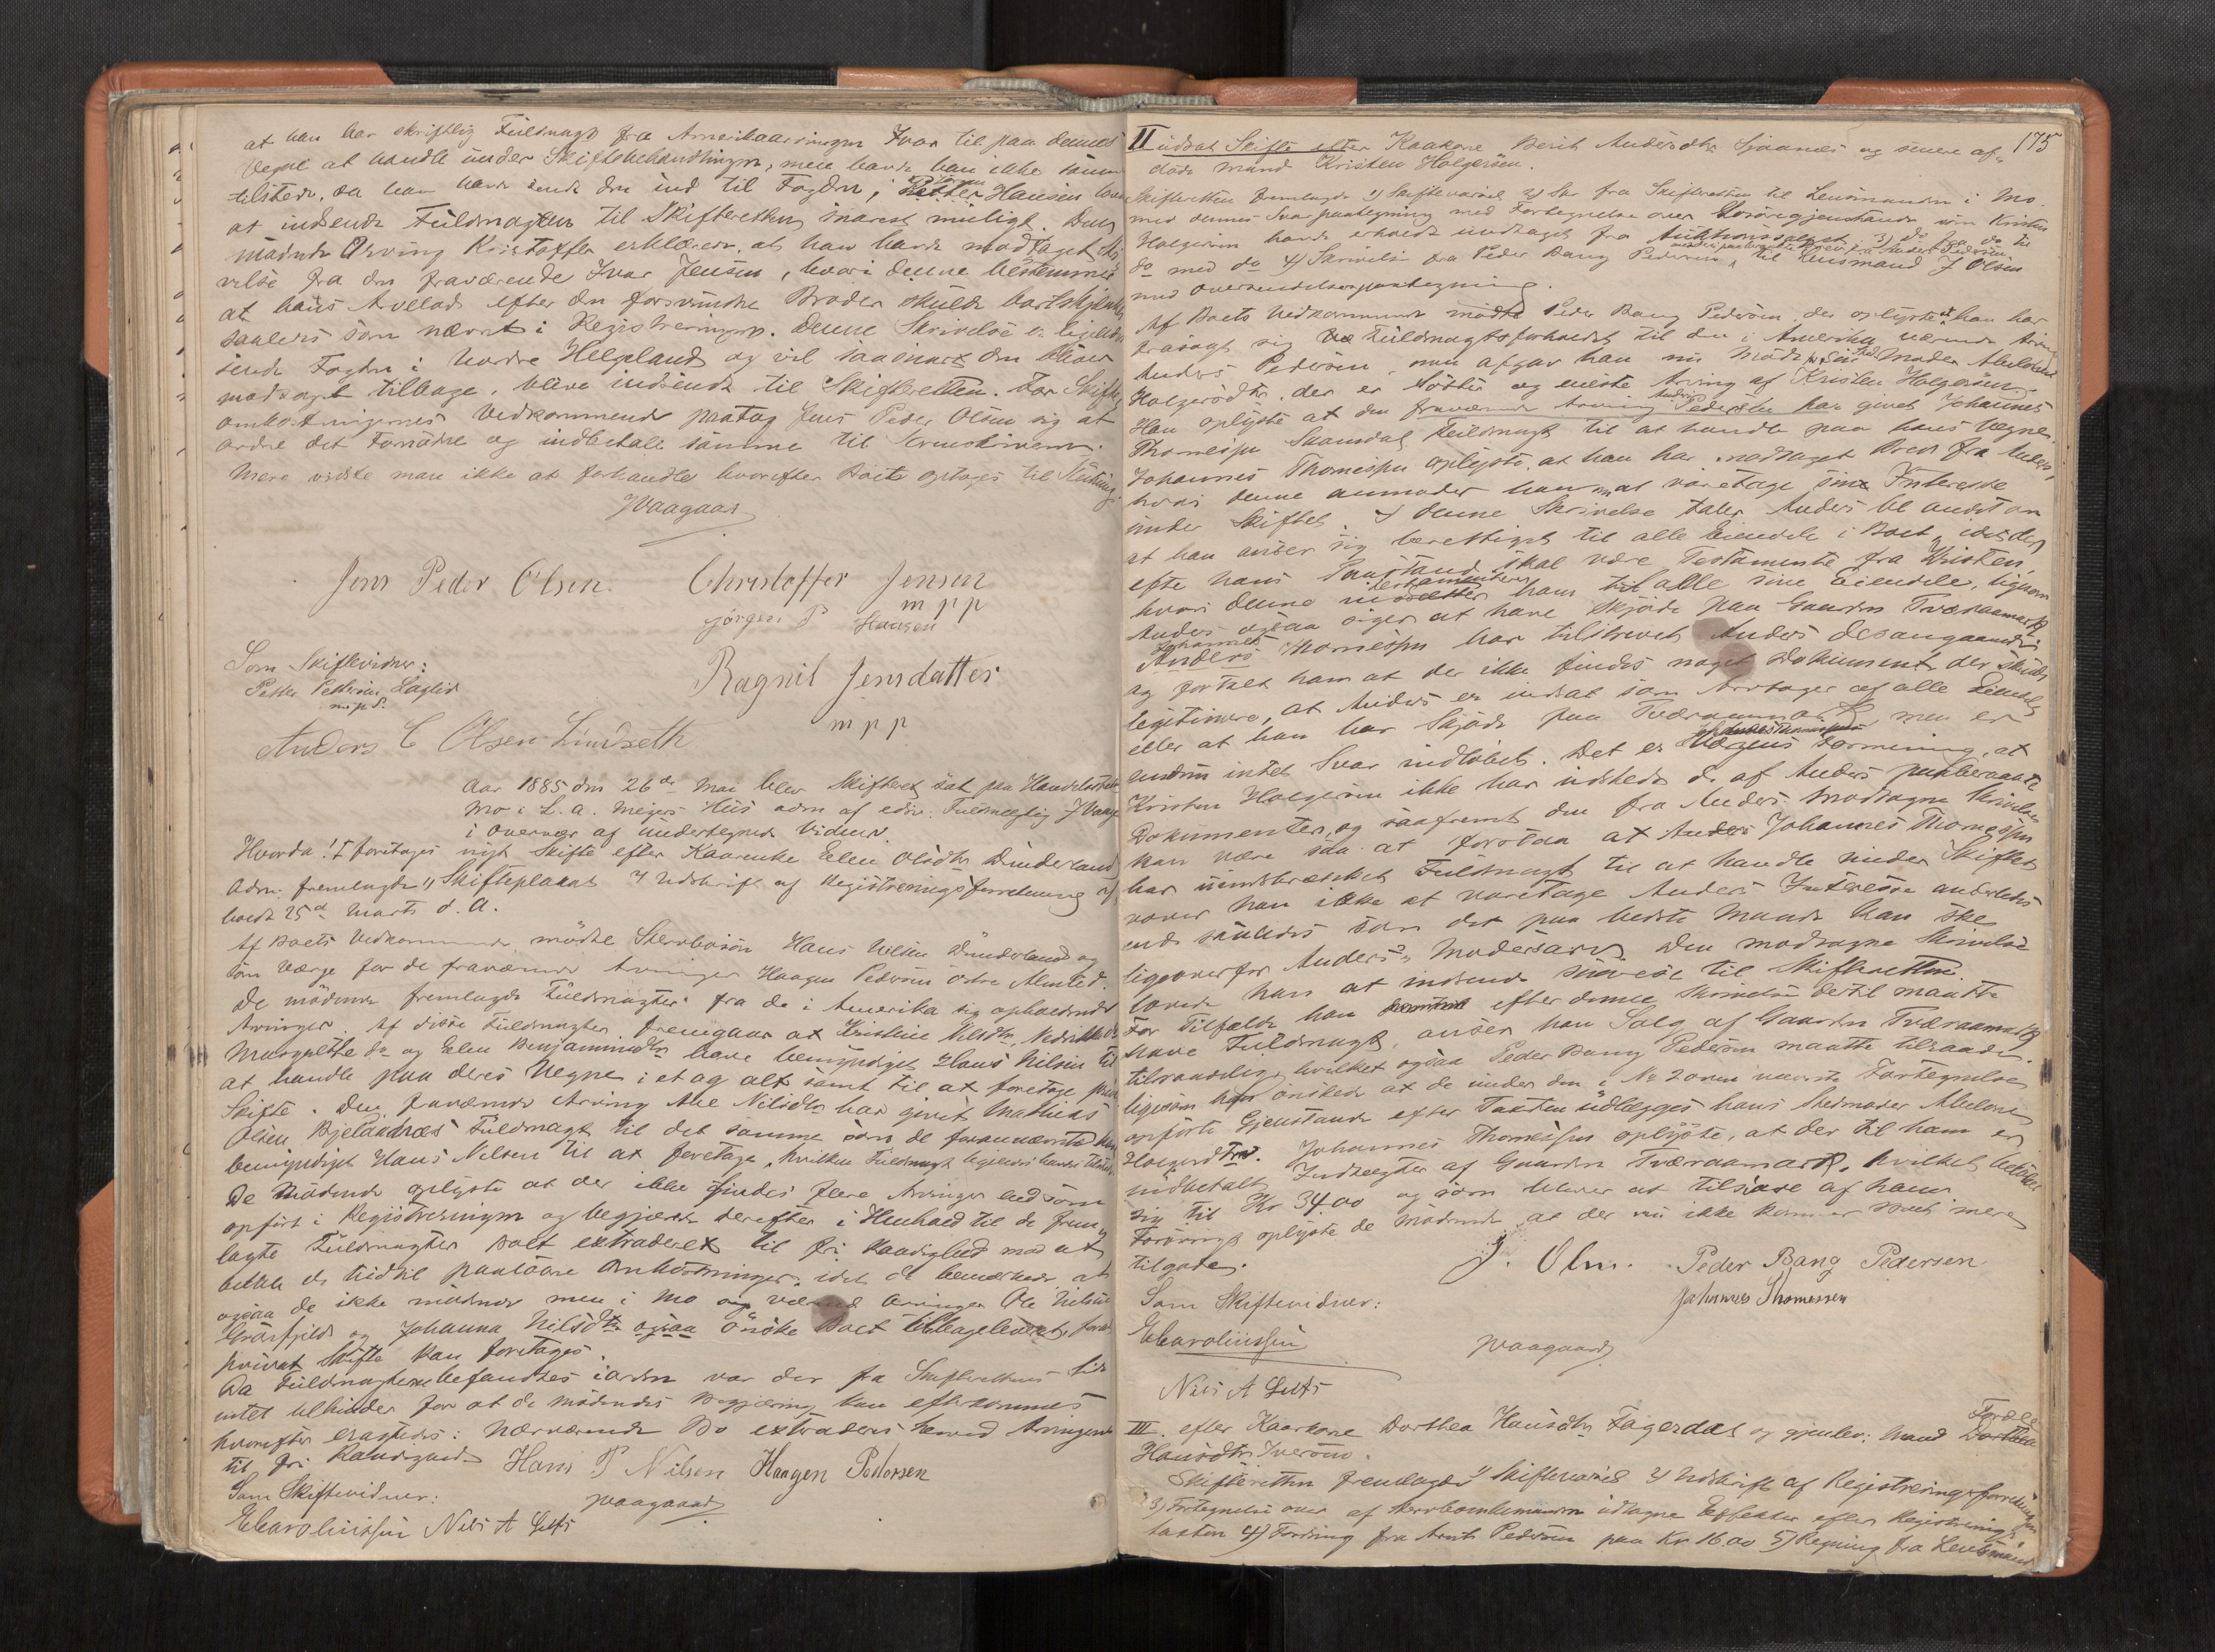 at han har skriftlig Fuldmagt fra Amerikaarvingen Ivar til paa dennes
Vegne at handle under Skiftebehandlingen, men havde han ikke samme
tilstede, da han havde sendt den ind til Fogden; Jørgen Hansen lovede
at indsende Fuldmagten til Skifteretten snarest muligt. Den
mødende Arving Kristoffer erklærede, at han havde modtaget Skri
velse fra den fraværende Ivar Jensen, hvori denne bestemmer
at hans Arvelod efter den forsvundne Broder skulde bortskjænkes
saaledes som nævnt i Registreringen. Denne Skrivelse er ligeledes
sendt Fogden i Nordre Helgeland og vil saasnart den bliver
modtaget tilbage, blive indsendt til Skifteretten. For Skifte
omkostningernes Vedkommende paatog Jens Peder Olsen sig at
ordne det Fornødne og indbetale samme til Sorenskriveren.
Mere vidste man ikke at forhandle hvorefter Boet optages til Slutning
JVaagaard
Jens Peder Olsen. Christoffer Jensen
m p p
Jørgen P Hansen
Som Skiftevidner:
Petter Pedersen Laglid
m. p. P.
Ragnil Jensdatter
m p p
Anders C Olsen Lindseth
Aar 1885 den 26de Mai blev Skifteret sat paa Handelsstedet
Mo i L. A. Meyers Hus adm af edsv. Fuldmægtig J Vaagaard
i Overvær af undertegnede Vidner.
Hvorda! I foretages nyt Skifte efter Kaarenke Elen Olsdtr Dunderland
Adm: fremlagde 1) Skifteplakat 2) Udskrift af Registreringsforretning af
holdt 25de Marts d. A.
Af Boets Vedkommende mødte Stervbosøn Hans Nilsen Dunderland og
som Værge for de fraværende Arvinger Haagen Pedersen Østre Almlid.
De mødende fremlagde Fuldmagter fra de i Amerika sig opholdende
Arvinger. Af disse Fuldmagter fremgaar at Kristine Nilsdtr, Nedrikke do
Margrethe do og Elen Benjaminsdtr have bemyndiget Hans Nilsen til
at handle paa deres Vegne i et og alt samt til at foretage privat
Skifte. Den fraværende Arving Ane Nilsdtr har givet Mathias
Olsen Bjellaanæs Fuldmagt til det samme som de forannævnte har
bemyndiget Hans Nilsen til at foretage, hvilken Fuldmagt ligeledes havdes tilstede
De mødende oplyste at der ikke findes flere Arvinger end som
opført i Registreringen og begjærede derefter i Henhold til de frem
lagte Fuldmagter Boet extraderet til fri Raadighed mod at
betale de hidtil paaløbne Omkostninger, idet de bemærkede at
ogsaa de ikke mødende men i Mo værende Arvinger Ole Nilsen
Graasfjeld og Johanna Nilsdtr ogsaa ønske Boet tilbageleveret, forat
privat Skifte kan foretages.
Da Fuldmagterne befandtes iorden var der fra Skifterettens Side
intet tilhinder for at de mødendes Begjæring kan efterkommes
hvorefter eragtedes: Nærværende Bo extraderes herved Arvingerne
til fri Raadighed. Hans P Nilsen Haagen Pedersen
Som Skiftevidner: JVaagaard
ECaroliussen Nils A Selfors
175
II udsat Skifte efter Kaakone Berit Andersdtr Sjaanæs og senere af=
døde mand Kristen Holgersen.
Skifteretten fremlagde 1) Skiftevarsel 2) Skr fra Skifteretten til Lensmanden i Mo
med dennes Svarpaategning med Fortegnelse over Løsøregjenstande som Kristen
Holgersen havde erholdt undtaget fra Auktionssalget 3) do fra do til
do med do 4) Skrivelse fra Peder Bang Pedersen, til Lensmand J Olsen
med Oversendelsespaategning.
Af Boets Vedkommende mødte Peder Bang Pedersen, der oplyste at han har
frasagt sig Fuldmagtsforholdet til den i Amerika værende Arving
Anders Pedersen, men afgav han nu Møde for sin Moder Abelone
Holgersdtr, der er Søster og eneste Arving af Kristen Holgersen
Han oplyste at den fraværende Arving Anders Pedersen har givet Johannes
Thomesen Skansdal Fuldmagt til at handle paa hans Vegne.
Johannes Thomesen oplyste, at han har modtaget Brev fra Anders,
hvori denne anmoder ham om at varetage sine Interesse
under Skiftet. I denne Skrivelse taler Anders bl andet om
at han anser sig berettiget til alle Eiendele i Boet, idet der
efter hans Paastand skal være Testamente fra Kristen,
hvori denne testamenterer ham til alle sine Eiendele, ligesom
Anders ogsaa siger at have Skjøde paa Gaarden Tværaamark.
Johannes Thomesen har tilskrevet Anders desangaaende
og fortalt ham at der ikke findes noget Dokument der skulde
legitimere, at Anders er indsat som Arvtager af alle Eiendele
eller at han har Skjøde paa Tværaamark, men er
endnu intet Svar indløbet. Det er Johannes Thomesens Formening, at
Kristen Holgersen ikke har udstedt de af Anders paaberaabte
Dokumenter, og saafremt den fra Anders modtagne Skrivelse
kan være saa at forstaa at Anders Johannes Thomesen
har uindskrænket Fuldmagt til at handle under Skiftet
vover han ikke at varetage Anders Interesse anderledes
end saaledes som det paa bedste Maade kan ske
ligeoverfor Anders's Modersarv. Den modtagne Skrivelse
lovede han at indsende snarest til Skifteretten.
For Tilfælde han efter denne Skrivelse dertil maatte
have Fuldmagt, anser han Salg af Gaarden Tværaamark
tilraadelig, hvilket ogsaa Peder Bang Pedersen maatte tilraade.
ligesom han ønskede at de under den i No 2 oven nævnte Fortegnelse
opførte Gjenstande efter Taxten udlægges hans Stedmoder Abelone
Holgersdtr. Johannes Thomesen oplyste, at der til ham er
indbetalt Indtægter af Gaarden Tværaamark, hvilket beløber
sig til Kr 34.00 og som bliver at tilsvare af ham.
Forøvrigt oplyste de mødende at der nu ikke kommer Boet mere
tilgode.
J. Olsen. Peder Bang Pedersen
Johannes Thomessen
Som Skiftevidner:
ECaroliussen JVaagaard
Nils A Selfors
III. efter Kaarkone Dorthea Hansdtr Fagerdal og gjenlev: Mand
Hansdtr Tverrmo.
Skifteretten fremlagde 1) Skiftevarsel 2) Udskrift af Registreringsforretningen
3) Fortegnelse over af Stervboenkemanden udtagne Effekter efter Registrerings
taxten 4) Fordring fra Arnt Pedersen paa Kr 16.00 5) Regning fra Lensmand